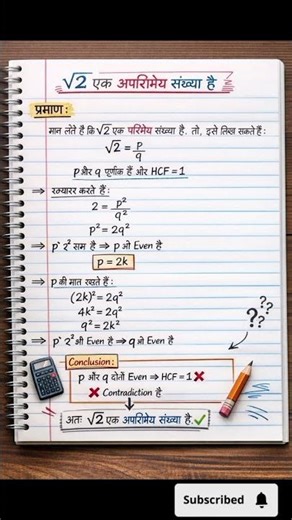 √2 एक अपरिमेय संख्या है
प्रमाण:
मान लेते हैं कि √2 एक परिमेय संख्या है. तो, इसे लिख सकते हैं:
√2 = p/q
p और q पूर्णांक हैं ओर HCF = 1
⇒ रक्यारर करते हैं:
2 = p²/q²
p² = 2q²
⇒ p` २² सम है ⇒ p ओ Even है
p = 2k
⇒ p की मात रखते हैं:
(2k)² = 2q²
4k² = 2q²
q² = 2k²
⇒ p` २² भी Even है ⇒ q ओ Even है
???
Conclusion:
p और q दोनों Even ⇒ HCF = 1 ❌
❌ Contradiction है
अतः √2 एक अपरिमेय संख्या है. ✓
Subscribed